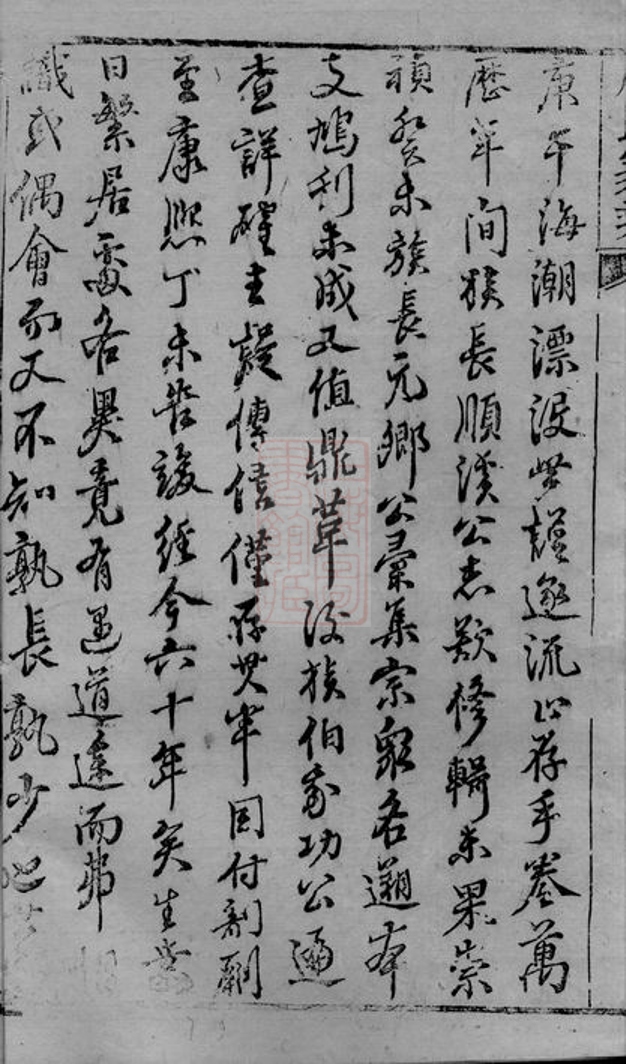 庚午海潮漂沒世譜遂流止存手卷萬
歷年間族長順溪公志欲修輯未果崇
禎癸未族長元鄉公彙集宗眾各遡本
支鳩刊未成又值鼎革後族伯我功公遍
查詳確去疑傳信僅存其半因付剞劂
至康熙丁未告竣経今六十年矣生齒
日繁居處各異竟有遇道途而弗相
識或偶會而又不知孰長孰少也